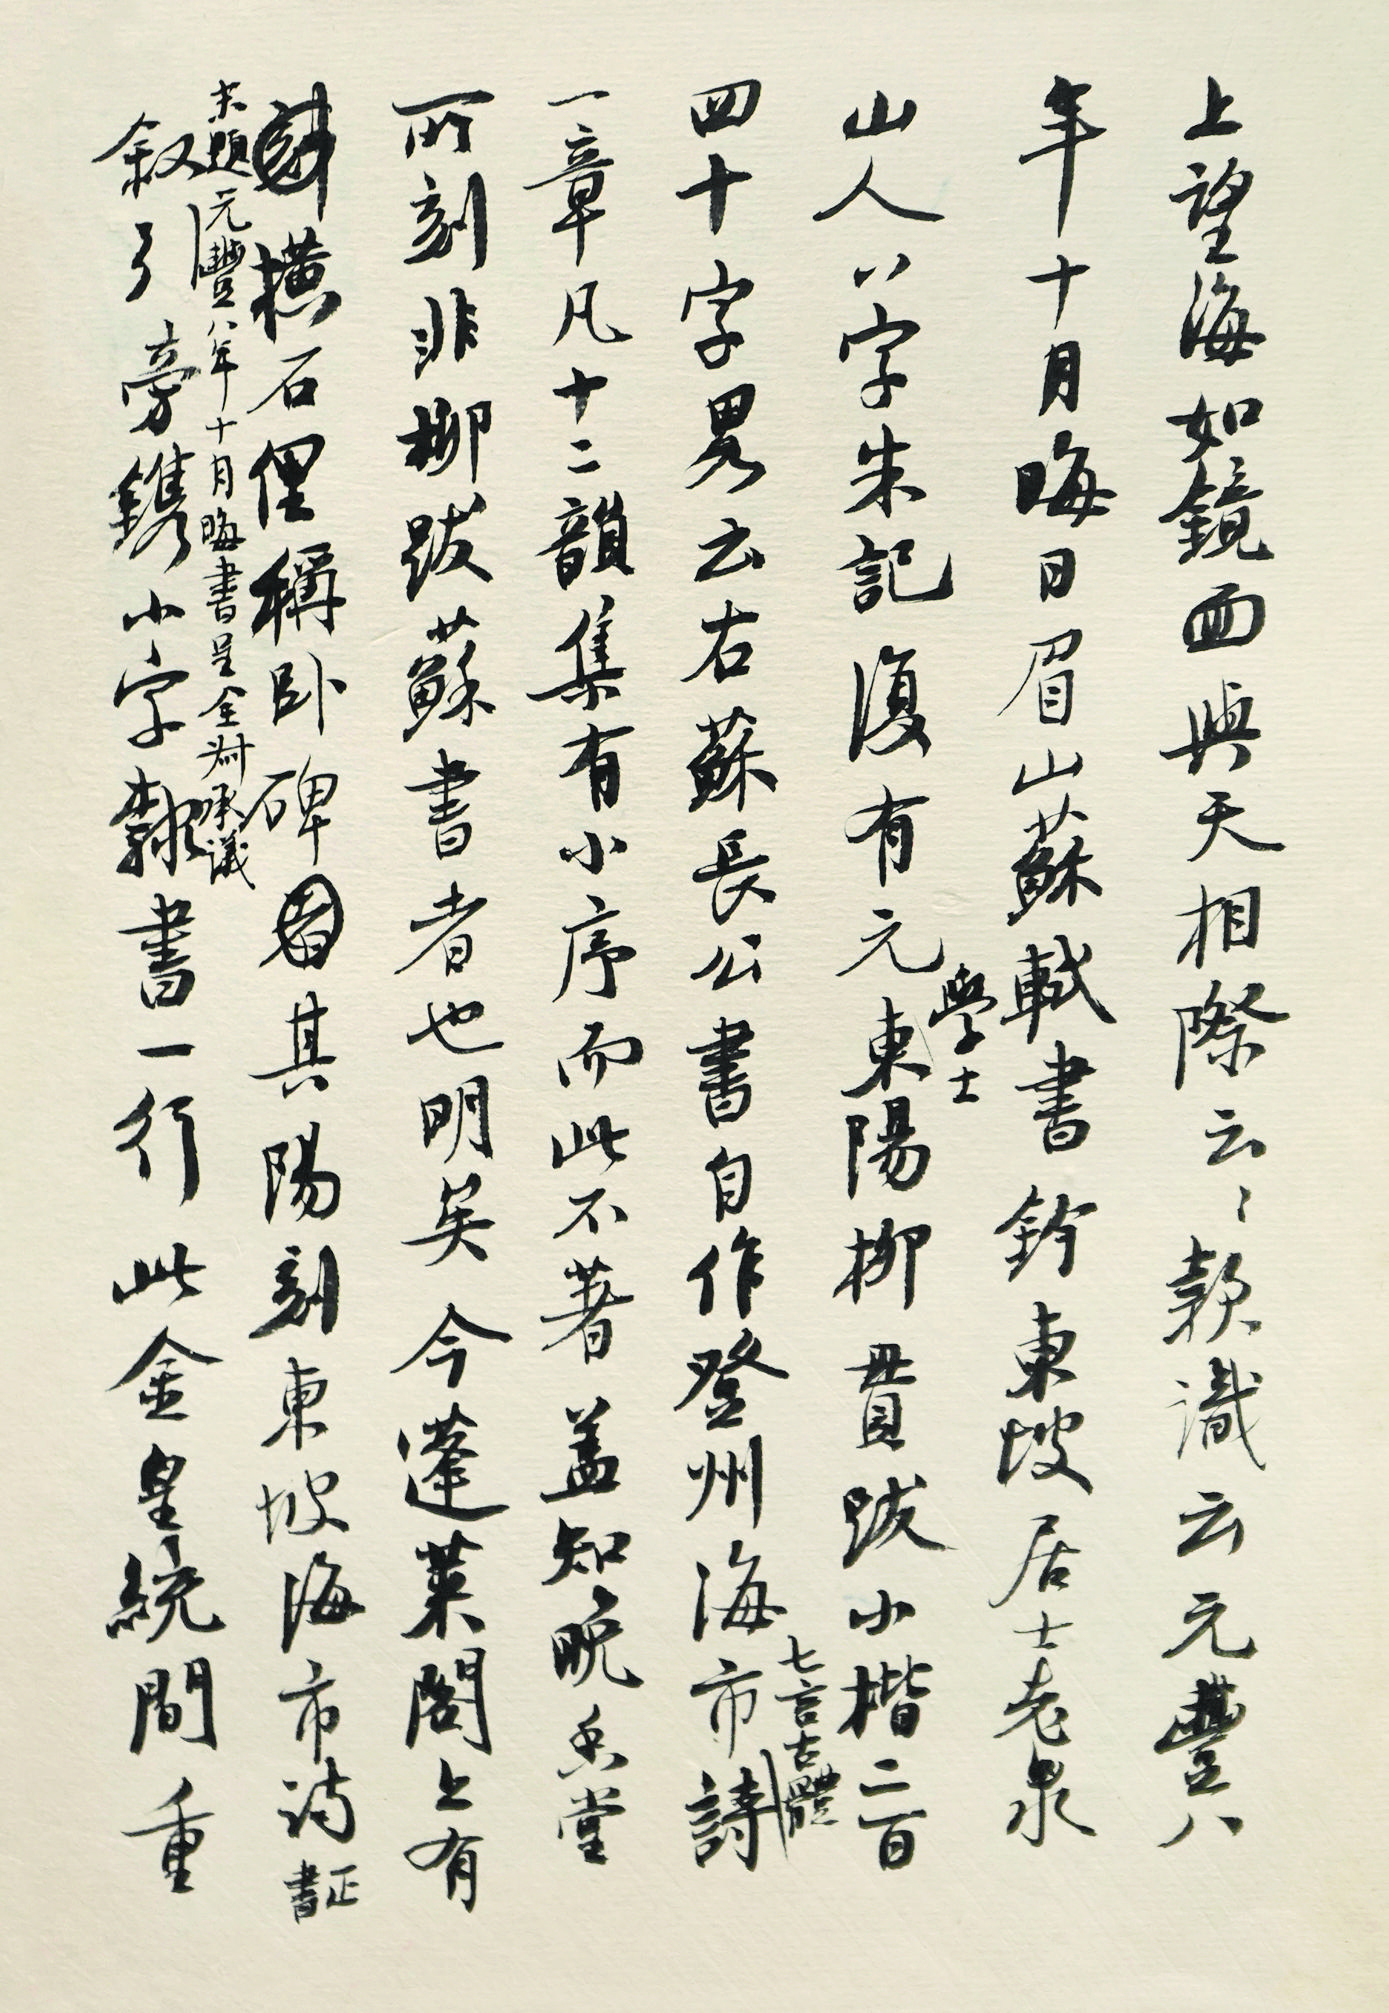 上望海如鏡面與天相際云〻款識云元豐八
年十月晦日眉山蘇軾書鈐東坡居士老泉
山人八字朱記復有元學士東陽柳貫跋小楷二百
四十字畧云右蘇長公書自作登州海市七言古體詩
一章凡十二韻集有小序而此不著盖知晚香堂
所刻非柳跋蘇書者也明矣今蓬萊閣上有
橫石俚稱卧碑其陽刻東坡海市詩正書
末題元豐八年十月晦書呈全叔承議
叙引旁鐫小字隸書一行此金皇統間重